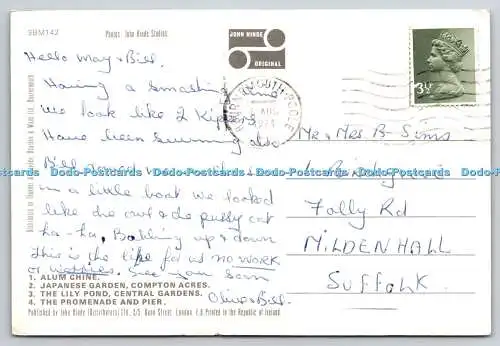 SBM142
Photos: John Hinde Studios
JOHN HINDE
ORIGINAL
Hello May & Bill.
Having a smashing time
We look like 2 Kippers
Have been swimming also
Bill
in a little boat we looked
like the owl & the pussy cat
ha-ha, Bobbing up & down
this is the life for us no work
or worries. See you soon
Olive & Bill.
BOURNEMOUTH-POOLE
AUG
1974
3½P
Mr & Mrs B Sims
1
Folly Rd
MILDENHALL
SUFFOLK.
Dodo-Postcards Dodo-Postcards Dodo-Postcards Dodo-Postcards Dodo-Postcards
1. ALUM CHINE.
2. JAPANESE GARDEN, COMPTON ACRES.
3. THE LILY POND, CENTRAL GARDENS.
4. THE PROMENADE AND PIER.
Published by John Hinde (Distributors) Ltd., 2/5, Bond Street, London. Printed in the Republic of Ireland